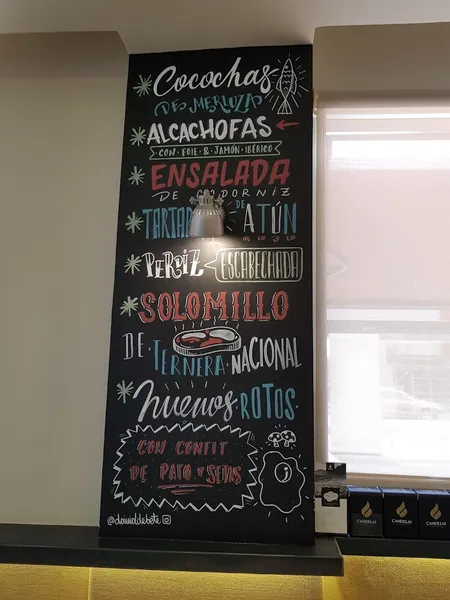 Cocochas
DE MERLUZA
ALCACHOFAS
CON FOIE & JAMÓN IBÉRICO
ENSALADA
DE CODORNIZ
DE ATÚN
PERDIZ ESCABECHADA
SOLOMILLO
DE TERNERA NACIONAL
Huevos ROTOS
CON CONFIT
DE PATO Y SETAS
CANDELAS CANDELAS CANDELAS